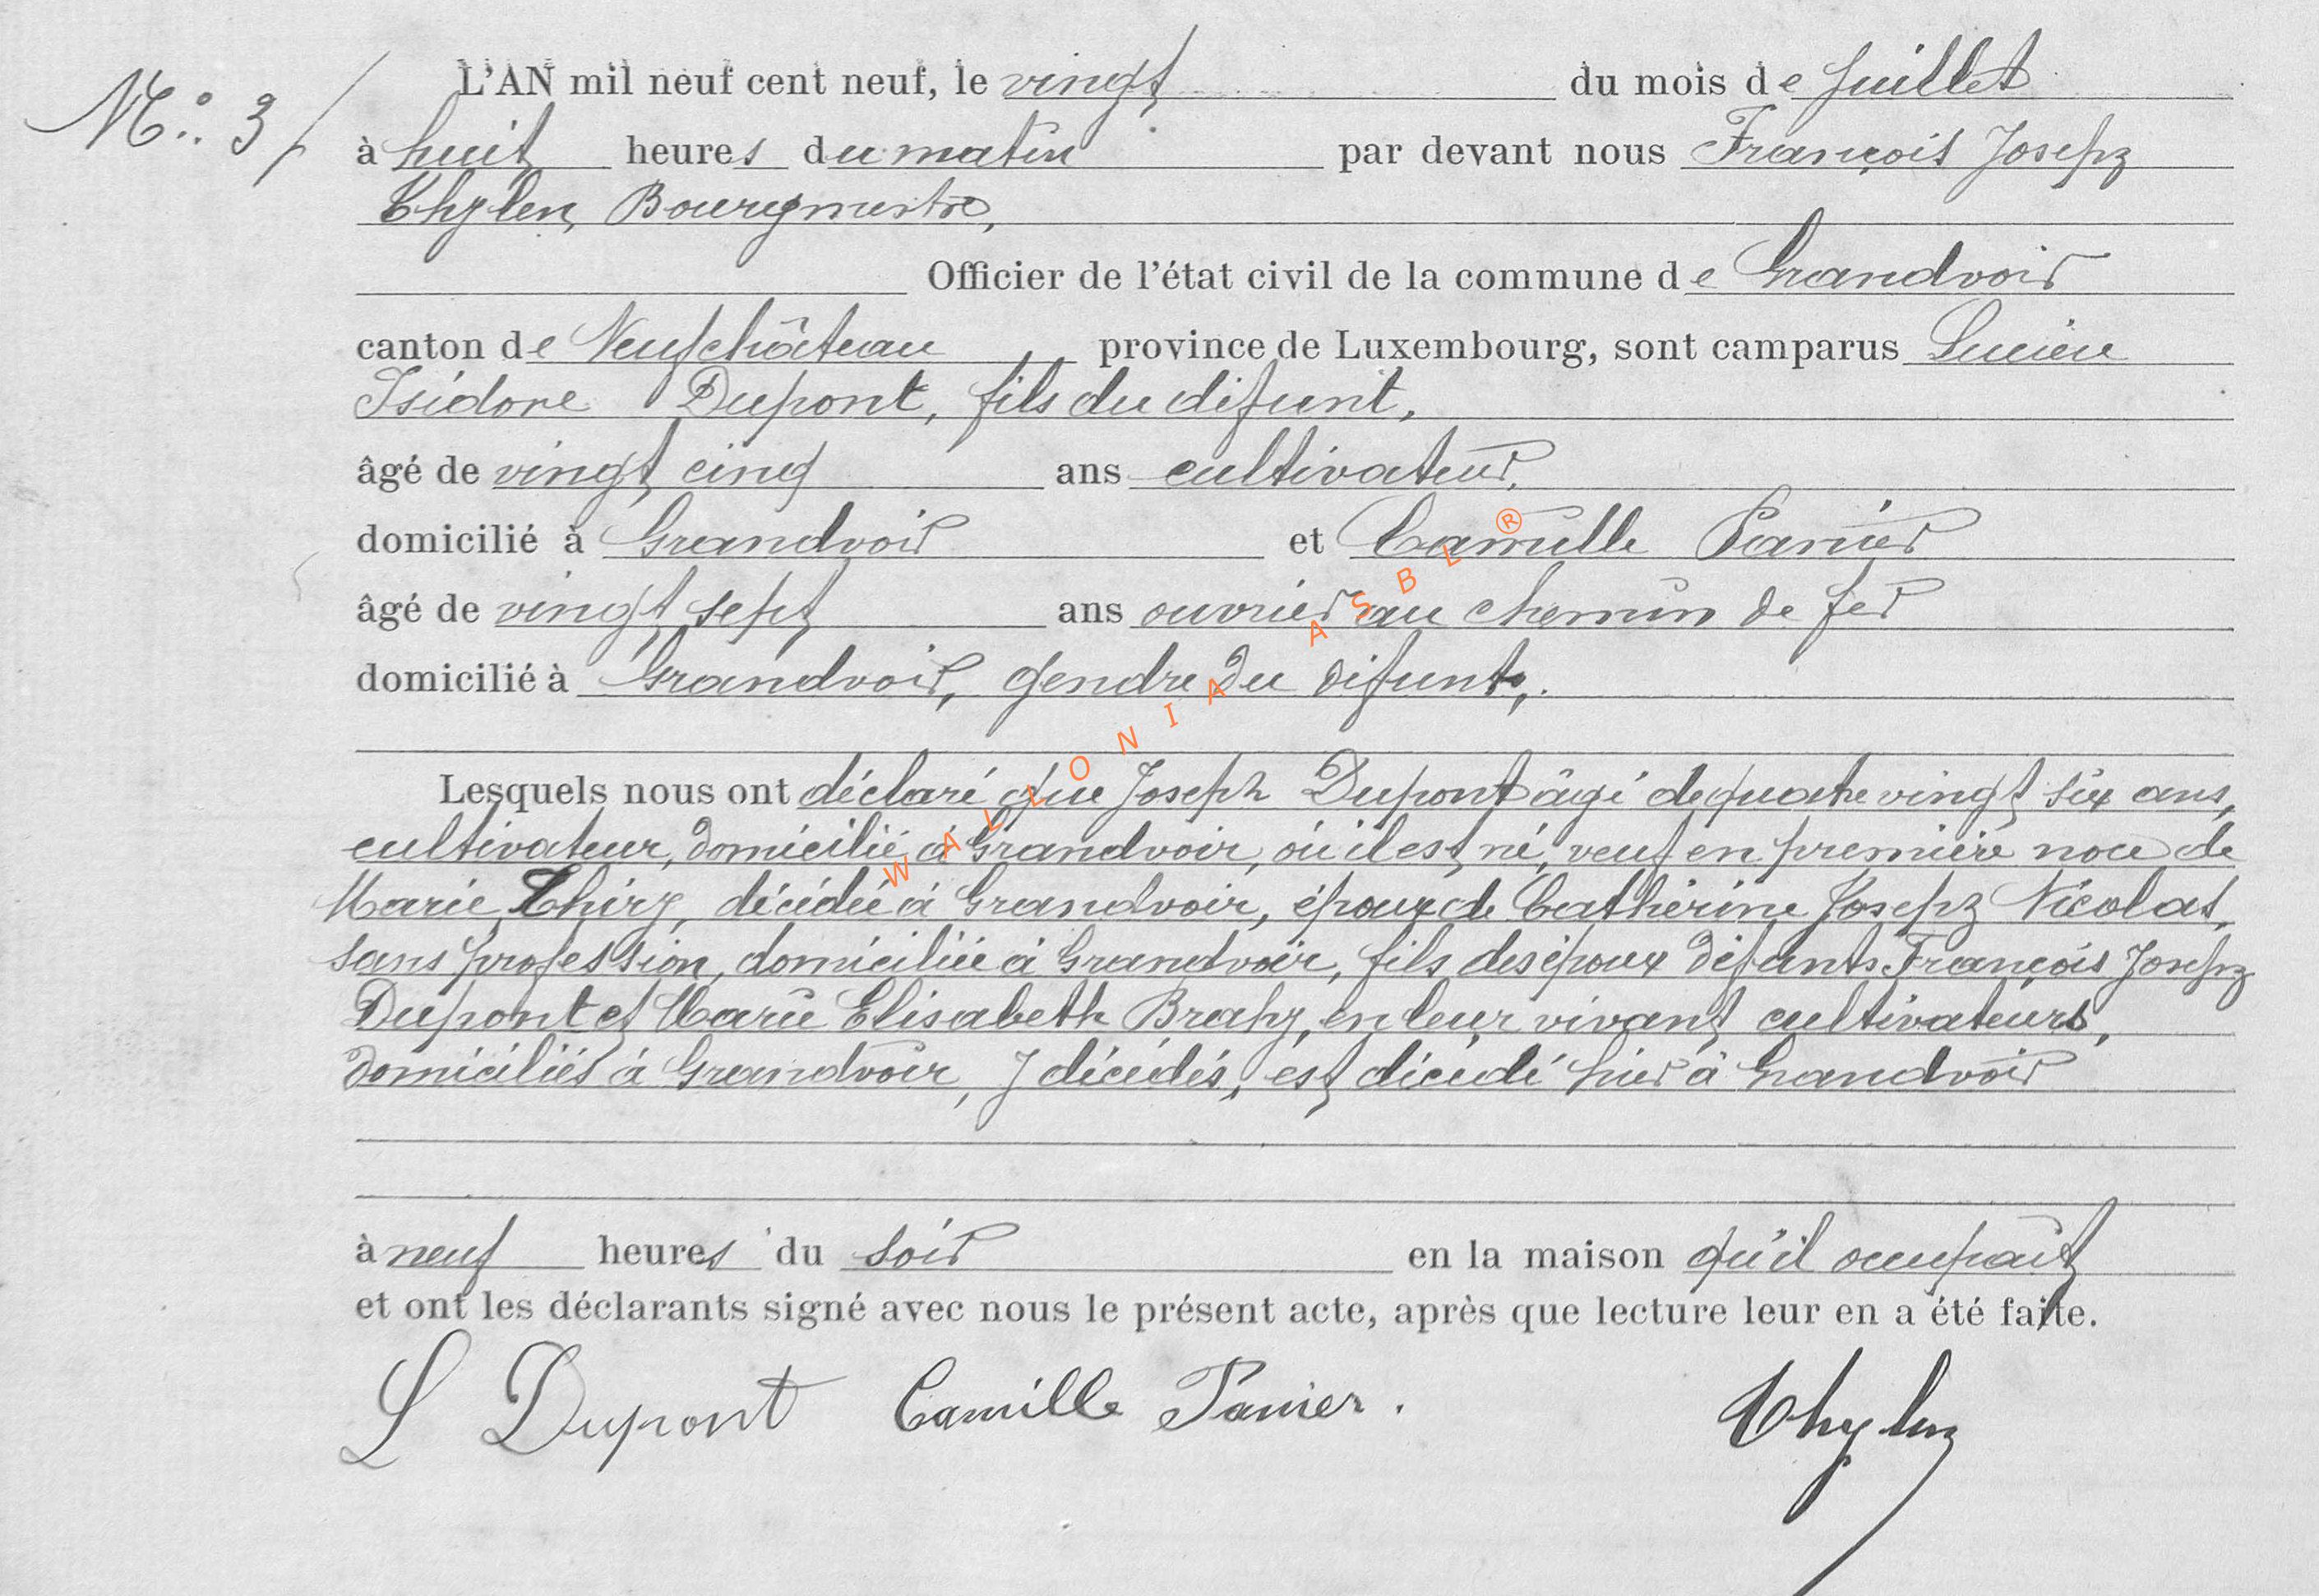 N°. 3/
L'AN mil neuf cent neuf, le vingt du mois de Juillet
à huit heures du matin par devant nous François Joseph
Thylen, Bourgmestre,
Officier de l'état civil de la commune de Grandvoir
canton de Neufchâteau province de Luxembourg, sont camparus Lucien
Isidore Dupont, fils du défunt,
âgé de vingt cinq ans cultivateur,
domicilié à Grandvoir et Camille Panier
âgé de vingt sept ans ouvrier au chemin de fer
domicilié à Grandvoir, gendre du défunt,.
Lesquels nous ont déclaré que Joseph Dupont âgé de quatre vingt six ans,
cultivateur, domicilié à Grandvoir, où il est né, veuf en première noce de
Marie Thiry, décédée à Grandvoir, époux de Catherine Joseph Nicolas,
sans profession, domiciliée à Grandvoir, fils des époux défunts François Joseph
Dupont et Marie Elisabeth Brahy, en leur vivant cultivateurs,
domiciliés à Grandvoir, y décédés, est décédé hier à Grandvoir
à neuf heures du soir en la maison qu'il occupait
et ont les déclarants signé avec nous le présent acte, après que lecture leur en a été faite.
L Dupont Camille Panier. Thylen
WALLONIA ASBL ®